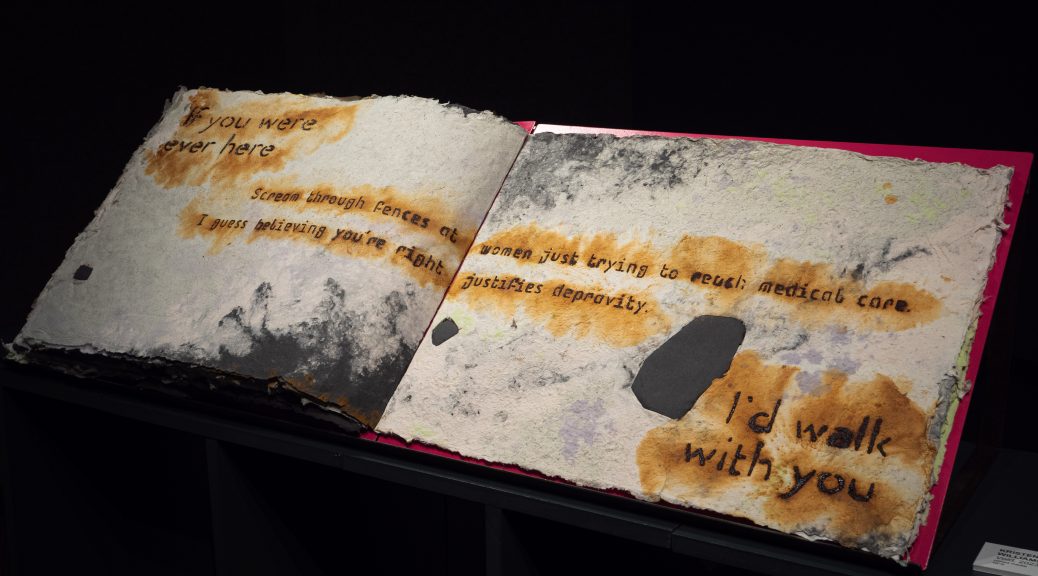 If you were
ever here
Scream through fences at women just trying to reach medical care.
I guess believing you're right justifies depravity.
I'd walk
with you
KRISTEN